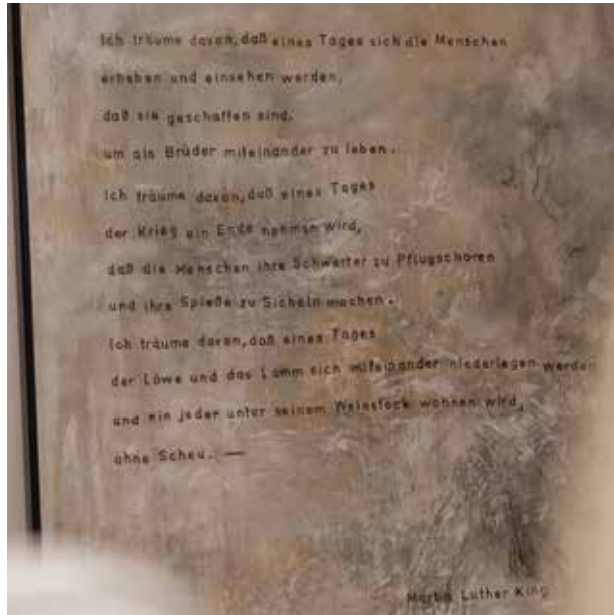 Ich träume davon, daß eines Tages sich die Menschen
erheben und einsehen werden,
daß sie geschaffen sind,
um als Brüder miteinander zu leben.
Ich träume davon, daß eines Tages
der Krieg ein Ende nehmen wird,
daß die Menschen ihre Schwerter zu Pflugscharen
und ihre Spieße zu Sicheln machen.
Ich träume davon, daß eines Tages
der Löwe und das Lamm sich miteinander niederlegen werden
und ein jeder unter seinem Weinstock wohnen wird,
ohne Scheu. —
Martin Luther King